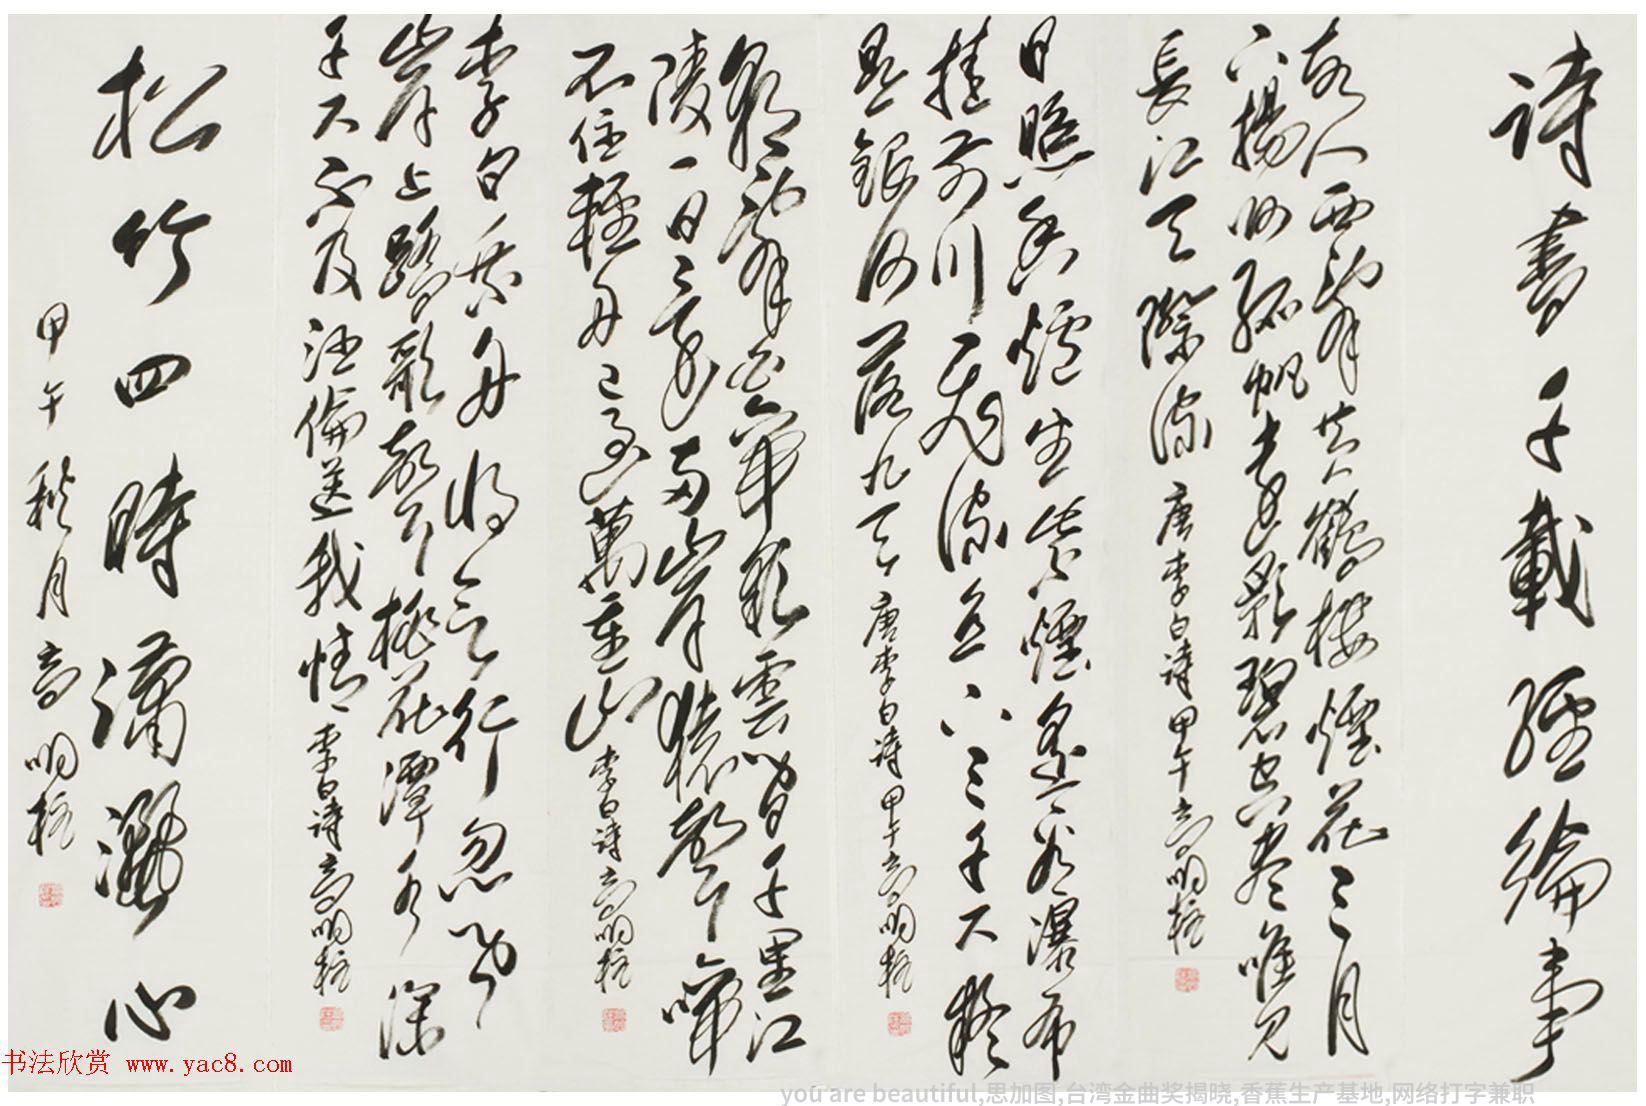 詩書千載經綸事
故人西辞黄鶴樓煙花三月
下揚州孤帆遠影碧空盡唯見
長江天際流 唐李白詩甲午高明柱
日照香爐生紫煙遥看瀑布
挂前川飛流直下三千尺疑
是銀河落九天 唐李白詩甲午高明柱
朝辞白帝彩雲間千里江
陵一日還兩岸猿聲啼
不住輕舟已過萬重山 李白詩高明柱
李白乘舟將欲行忽聞
岸上踏歌聲桃花潭水深
千尺不及汪倫送我情 李白詩高明柱
松竹四時瀟灑心
甲午秋月高明柱
书法欣赏 www.yac8.com
you are beautiful,思加图,台湾金曲奖揭晓,香蕉生产基地,网络打字兼职